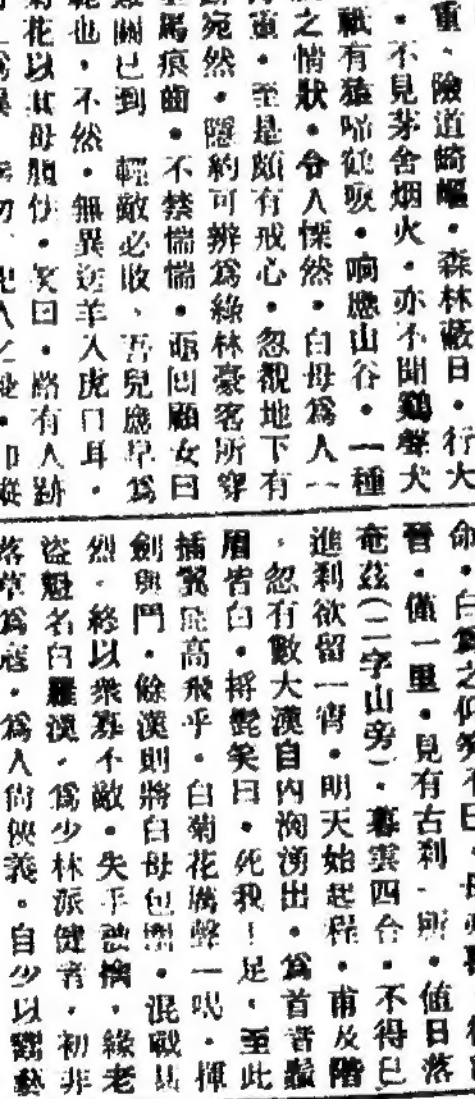 重、險道崎嶇。森林蔽日。行大
。不見茅舍烟火。亦不聞鷄聲犬
祇有猿啼鶴唳。响應山谷。一種
之情狀。令人慄然。白母爲人一
。至是頗有戒心。忽覩地下有
宛然。隱約可辨爲綠林豪客所穿
馬痕齒。不禁惴惴。回顧女曰
難關已到 輕敵必敗、吾兒應早爲
範也。不然。無異送羊入虎口耳。
菊花以其母膽怯。笑曰。路有人跡
命。白爲之
晉。僅一里。見有古刹一所。値日落
奄茲(二字山旁)。暮雲四合。不得已
進刹欲留一宵。明天始起程。甫及階
。忽有數大漢自內洶湧出。爲首者鬚
眉皆白。捋髭笑曰。死我!足。至此
插翼能高飛乎。白菊花厲聲一叱。揮
劍與鬥。餘漢則將白母包圍。混戰甚
烈。終以衆寡不敵。失手就擒。緣老
盜魁名白羅漢。爲少林派健者。初非
落草爲寇。爲人尙俠義。自少以鬻藝